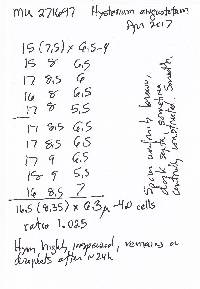 MU 271697 Hysterium angustatum
Apr 2017
15 (7,5) × 6,5-9
15 8 6,5
17 8,5 6
16 8 6,5
17 8 5,5
17 8,5 6,5
17 8,5 6,5
17 9 6,5
15 9 5,5
16 8,5 7
16.5 (8,35) × 6.3µ -40 cells
ratio 1.025
Hym highly inspersed, remains as
droplets after N 24h
Spores uniformly brown,
dark septa, sometimes
centrally constricted. Smooth.